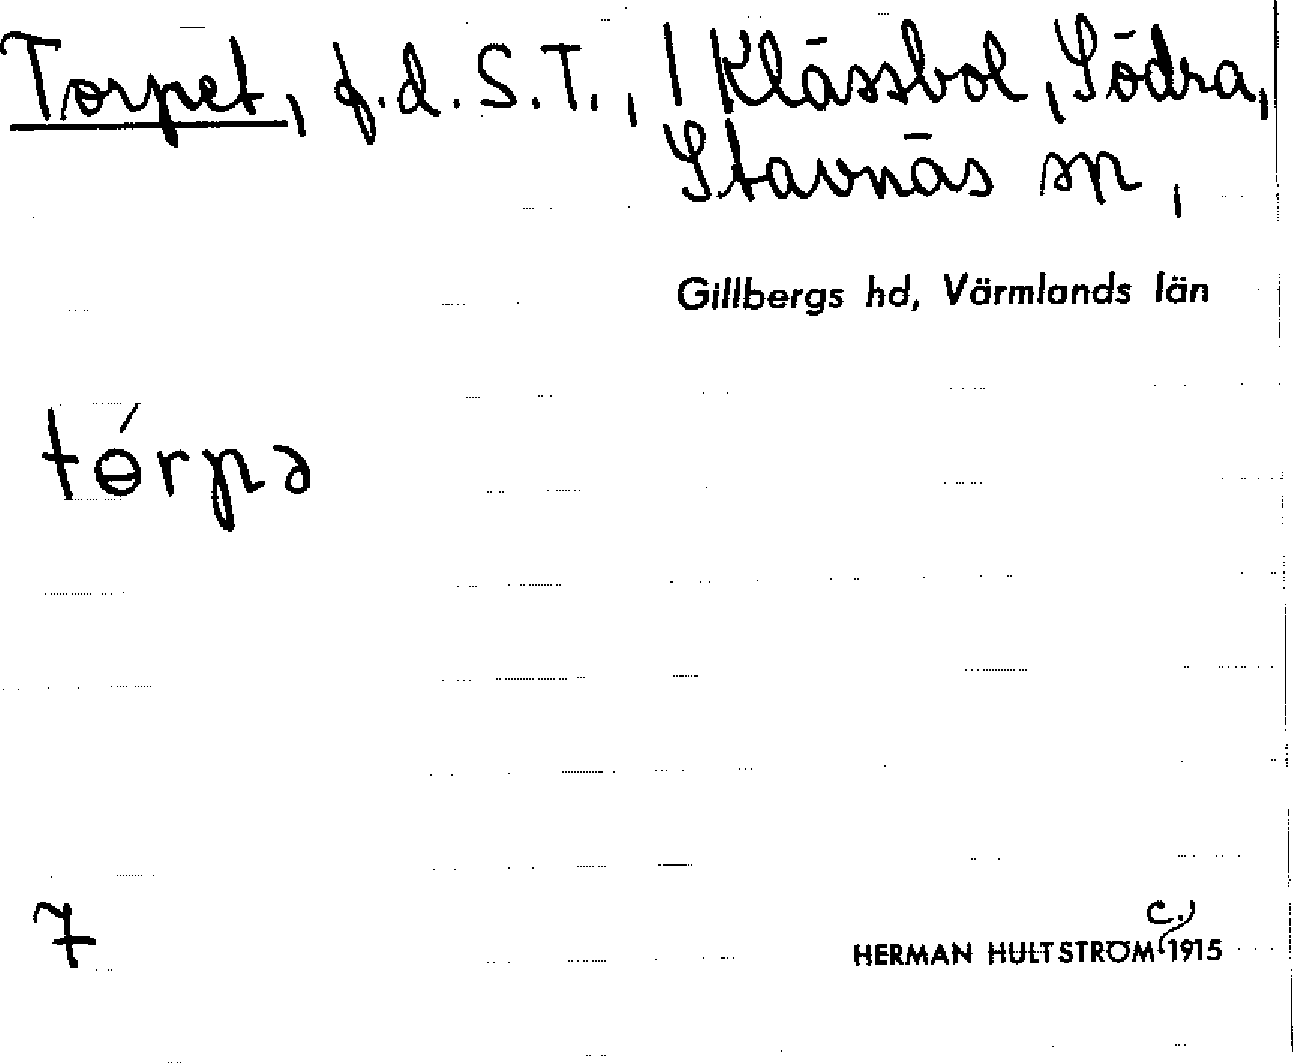 Torpet, f.d. S.T., 1 Klässbol, Södra,
Stavnäs sn,
Gillbergs hd, Värmlands län
tɵ́rpə
7
HERMAN HULTSTRÖM c. 1915